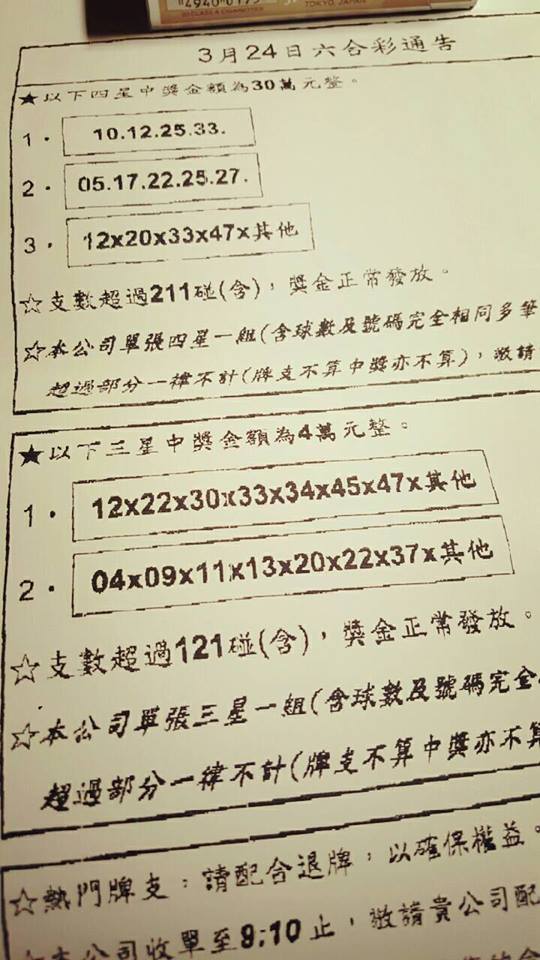 20 CLASS A CIGARETTES
TOKYO, JAPAN
3月24日六合彩通告
★以下四星中獎金額為30萬元整。
1. 10.12.25.33.
2. 05.17.22.25.27.
3. 12x20x33x47x其他
☆支數超過211碰(含)，獎金正常發放。
☆本公司單張四星一組(含球數及號碼完全相同多筆
超過部分一律不計(牌支不算中獎亦不算)，敬請
★以下三星中獎金額為4萬元整。
1. 12x22x30x33x34x45x47x其他
2. 04x09x11x13x20x22x37x其他
☆支數超過121碰(含)，獎金正常發放。
☆本公司單張三星一組(含球數及號碼完全
超過部分一律不計(牌支不算中獎亦不算
☆熱門牌支：請配合退牌，以確保權益。
☆本公司收單至9:10止，敬請貴公司配